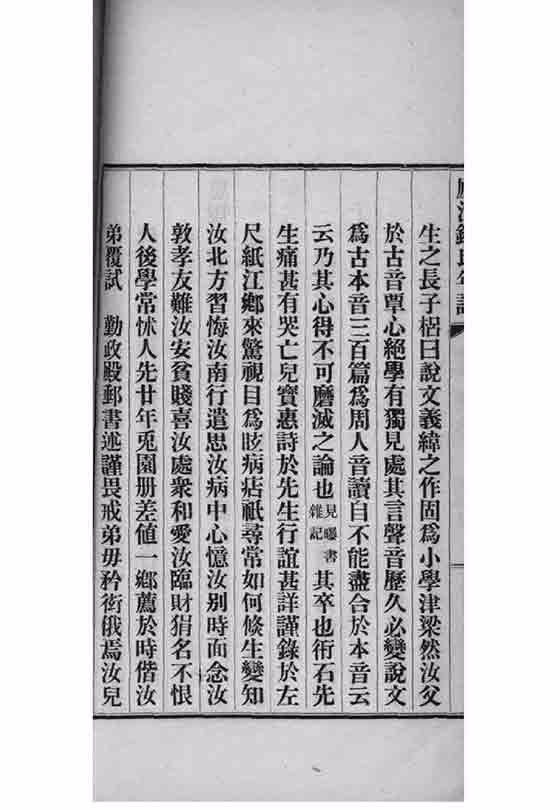 生之長子梠曰說文義緯之作固爲小學津梁然汝父
於古音覃心絕學有獨見處其言聲音歷久必變說文
爲古本音三百篇爲周人音讀自不能盡合於本音云
云乃其心得不可磨滅之論也見曝書雜記其卒也衎石先
生痛甚有哭亡兒寶惠詩於先生行誼甚詳謹錄於左
尺紙江鄉來驚視目爲眩病痁祇尋常如何倏生變知
汝北方習悔汝南行遣思汝病中心憶汝別時面念汝
敦孝友難汝安貧賤喜汝處衆和愛汝臨財狷名不恨
人後學常怵人先廿年兎園册差値一鄉薦於時偕汝
弟覆試 勤政殿郵書述謹畏戒弟毋矜衒俄焉汝兒